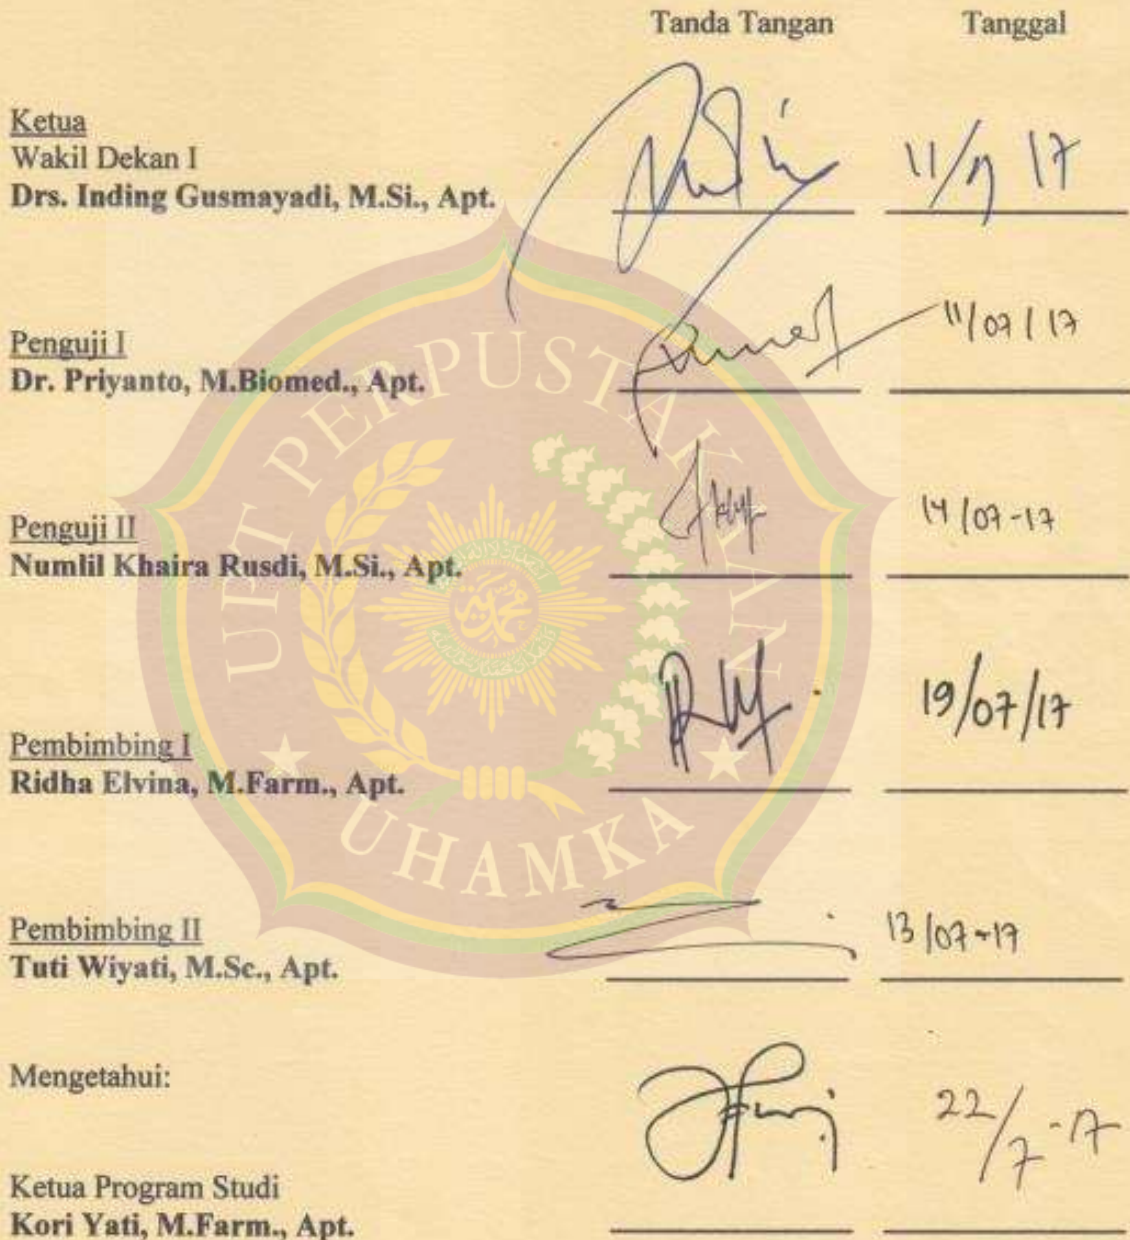 Tanda Tangan Tanggal
Ketua
Wakil Dekan I
Drs. Inding Gusmayadi, M.Si., Apt.
11/7 17
Penguji I
Dr. Priyanto, M.Biomed., Apt.
11/07/17
Penguji II
Numlil Khaira Rusdi, M.Si., Apt.
14/07-17
Pembimbing I
Ridha Elvina, M.Farm., Apt.
19/07/17
Pembimbing II
Tuti Wiyati, M.Sc., Apt.
13/07-17
Mengetahui:
22/7-17
Ketua Program Studi
Kori Yati, M.Farm., Apt.
UPT PERPUSTAKAAN
UHAMKA